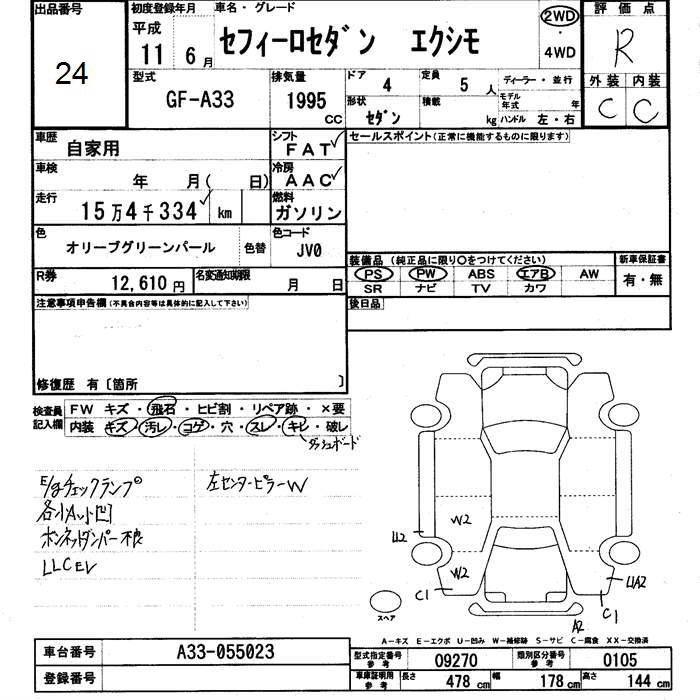 出品番号 初度登録年月 車名・グレード 評価点
24 平成 11 6月 セフィーロセダン エクシモ 2WD・4WD R
型式 GF-A33 排気量 1995 CC ドア 4 定員 5 人 ディーラー・並行 外装 内装
形状 セダン 積載 kg モデル年式 年 ハンドル 左・右 C C
車歴 自家用 シフト FAT セールスポイント(正常に機能するものに限ります)
車検 年 月( 日) 冷房 AAC
走行 15万4千334 km 燃料 ガソリン
色 オリーブグリーンパール 色替 色コード JV0
装備品(純正品に限り○をつけてください) 新車保証書
PS PW ABS エアB AW 有・無
SR ナビ TV カワ
R券 12,610円 名変通知期限 月 日
後日品
注意事項申告欄(不具合内容等は具体的に記入して下さい)
修復歴 有〔箇所 〕
検査員記入欄 FW キズ・飛石・ヒビ割・リペア跡・×要
内装 キズ・汚レ・コゲ・穴・スレ・キレ・破レ
ダッシュボード
E/gチェックランプ 左センターピラーW
各小A小凹
ボンネットダンパー不良
LLCEV
W2
U2
W2
C1
UA2
C1
A2
スペア
A-キズ E-エクボ U-凹み W-補修跡 S-サビ C-腐食 XX-交換済
車台番号 A33-055023 型式指定番号 参考 09270 類別区分番号 参考 0105
登録番号 車庫証明用 参考 長さ 478 cm 幅 178 cm 高さ 144 cm